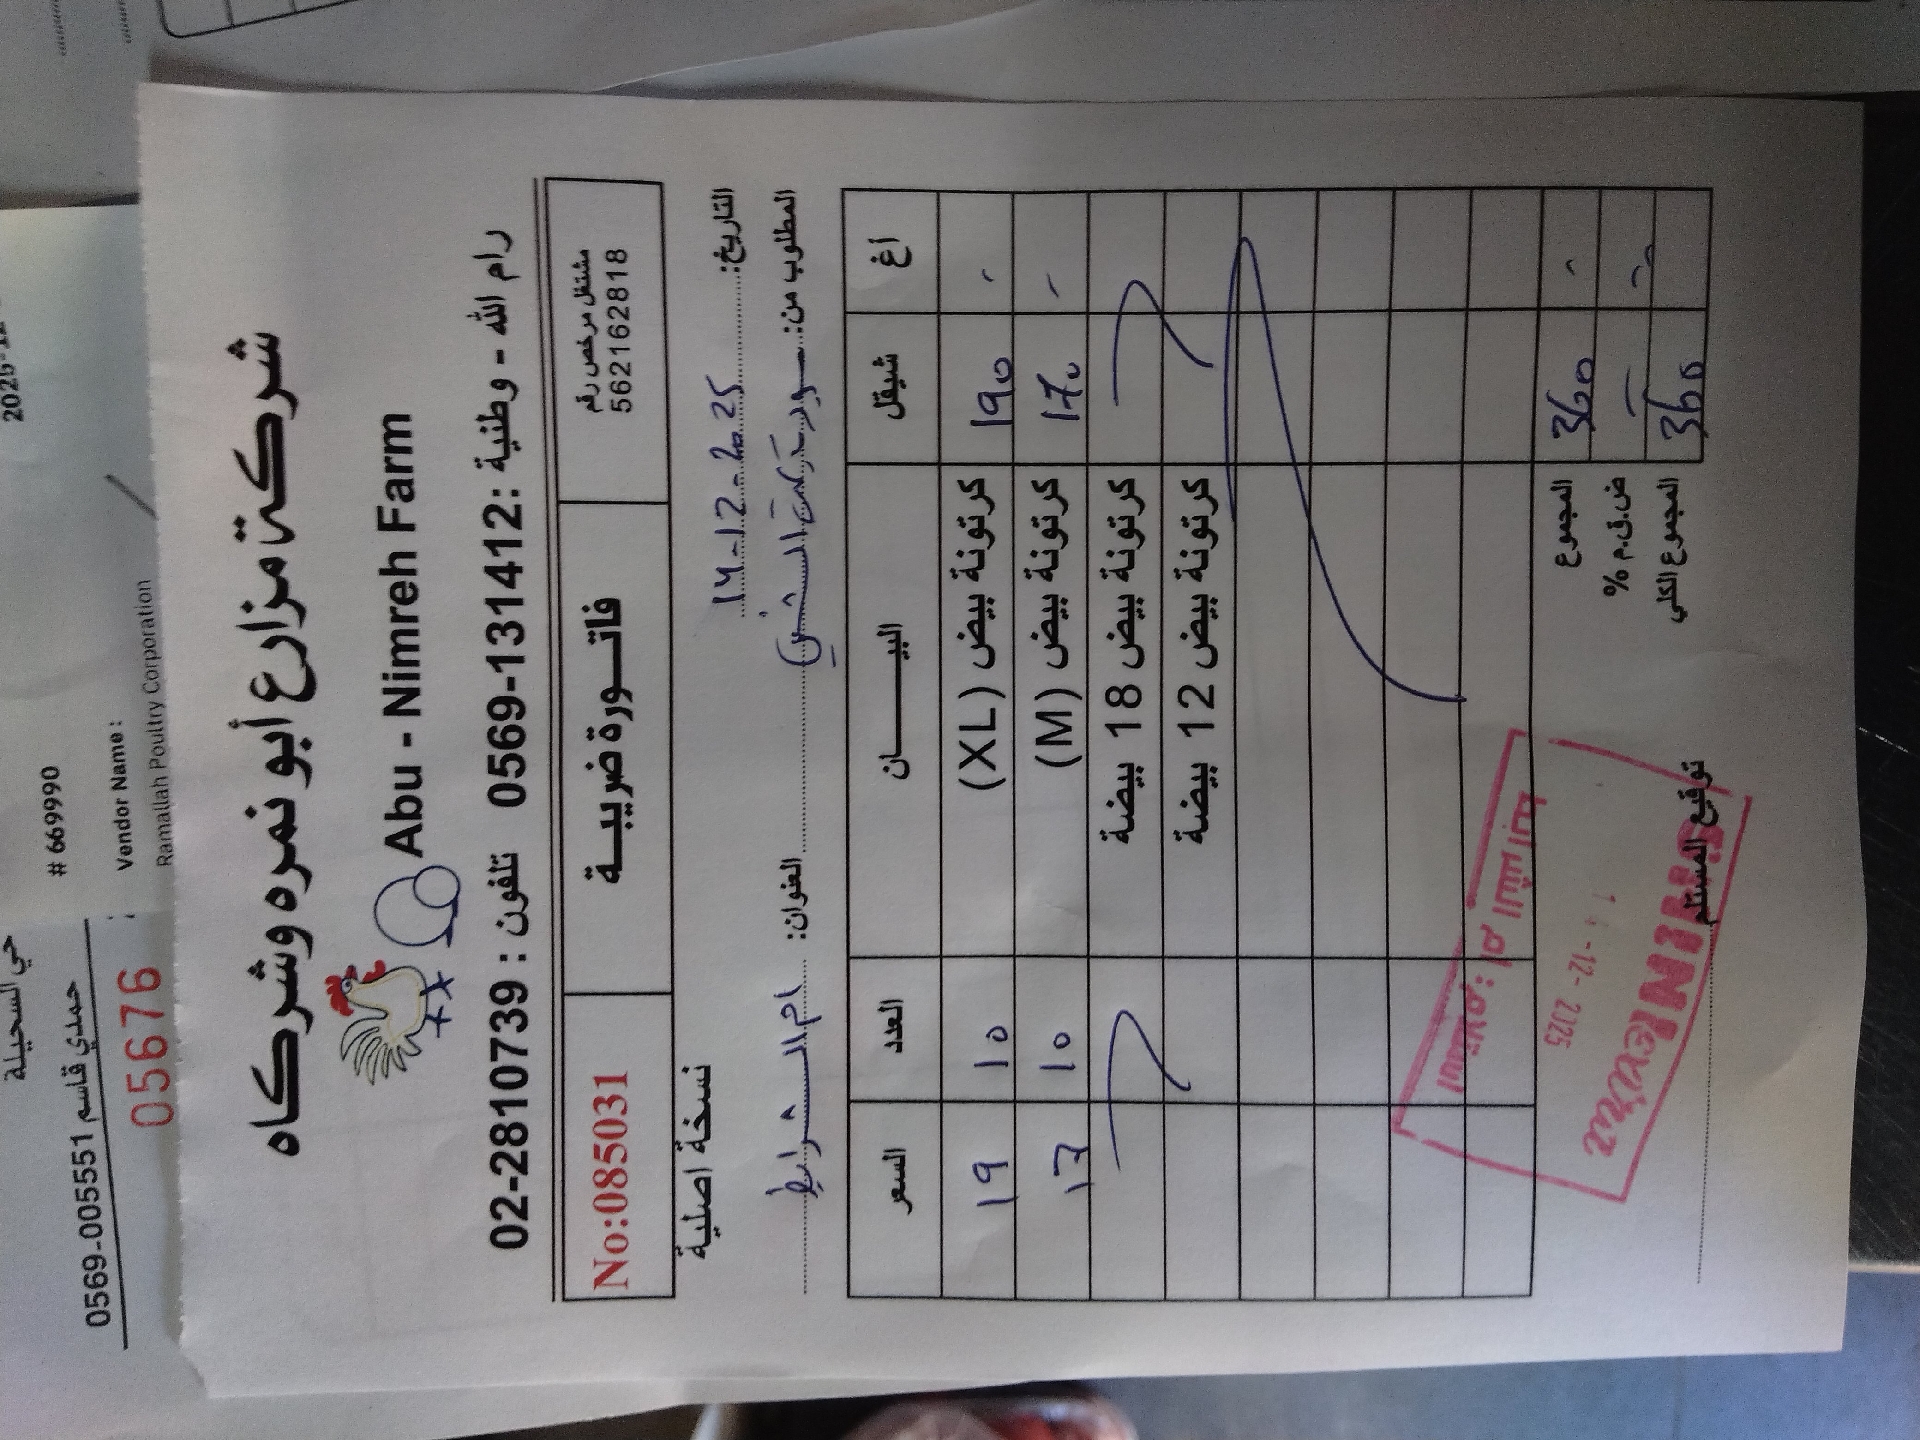 2025-12
حي السحيلة
# 669990
حمدي قاسم 0569-005551
Vendor Name :
05676
Ramallah Poultry Corporation
شركة مزارع أبو نمره وشركاه
Abu - Nimreh Farm
رام الله - وطنية :0569-131412 تلفون : 02-2810739
مشتغل مرخص رقم
562162818
فاتـــورة ضريبيـــة
No:085031
نسخة اصلية
التاريخ: 14-12-2025
المطلوب من: سوبر ماركت
العنوان: ام الشرايط
أغ شيقل البيـــــان العدد السعر
- 190 كرتونة بيض (XL) 10 19
- 170 كرتونة بيض (M) 10 17
كرتونة بيض 18 بيضة
كرتونة بيض 12 بيضة
- 360 المجموع
ض.ق.م %
360 المجموع الكلي
توقيع المستلم
12- 2025